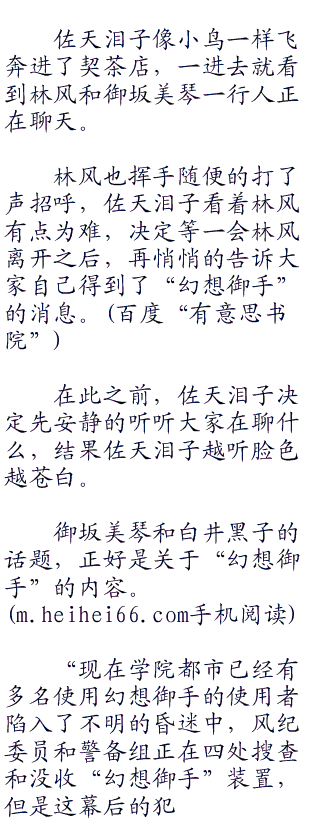 佐天泪子像小鸟一样飞
奔进了契茶店，一进去就看
到林风和御坂美琴一行人正
在聊天。
林风也挥手随便的打了
声招呼，佐天泪子看着林风
有点为难，决定等一会林风
离开之后，再悄悄的告诉大
家自己得到了“幻想御手”
的消息。(百度“有意思书
院”)
在此之前，佐天泪子决
定先安静的听听大家在聊什
么，结果佐天泪子越听脸色
越苍白。
御坂美琴和白井黑子的
话题，正好是关于“幻想御
手”的内容。
(m.heihei66.com手机阅读)
“现在学院都市已经有
多名使用幻想御手的使用者
陷入了不明的昏迷中，风纪
委员和警备组正在四处搜查
和没收“幻想御手”装置，
但是这幕后的犯